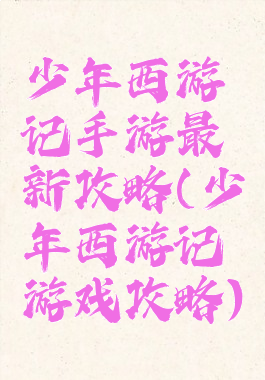 少年西游
记手游最
新攻略(少
年西游记
游戏攻略)